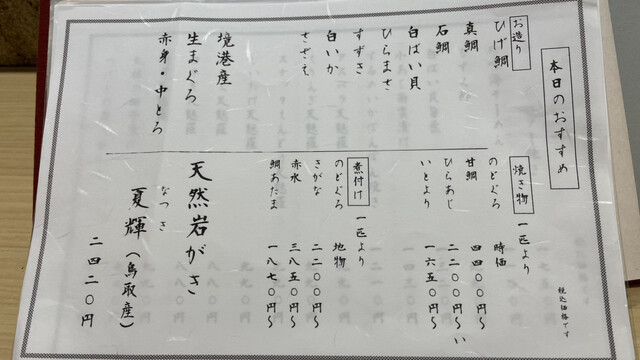 本日のおすすめ
お造り
ひげ鯛
真鯛
石鯛
白ばい貝
ひらまさ
すずき
白いか
さざえ
境港産
生まぐろ
赤身・中とろ
焼き物 一匹より
のどぐろ 時価
甘鯛 四四〇〇円〜
ひらあじ 二二〇〇円〜
いとより 一六五〇円〜
煮付け 一匹より
のどぐろ 地物
きがな 二二〇〇円〜
赤水 三八五〇円〜
鯛あたま 一八七〇円〜
天然岩がき
なつき
夏輝（鳥取産）
二四二〇円
税込価格です